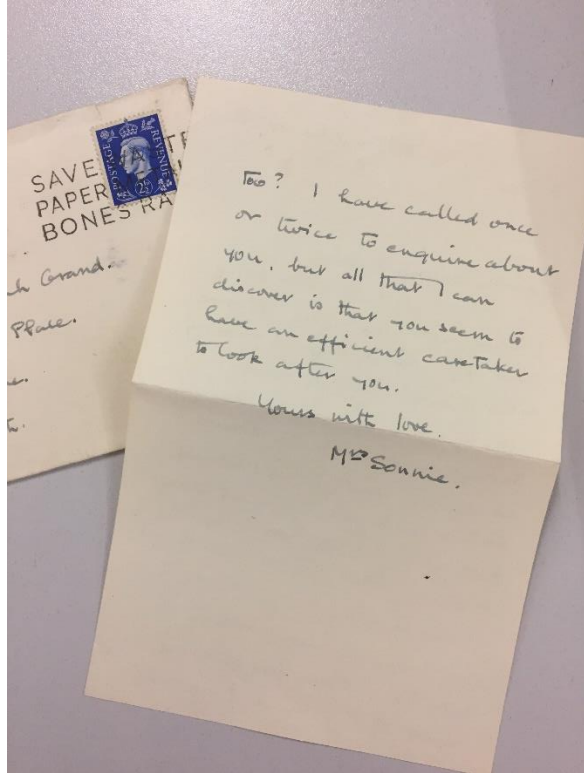 SAVE WASTE
PAPER
BONES RA
POSTAGE
REVENUE
2½
h Grand.
Place.
too? I have called once
or twice to enquire about
you, but all that I can
discover is that you seem to
have an efficient caretaker
to look after you.
Yours with love.
Mrs Sonnie.